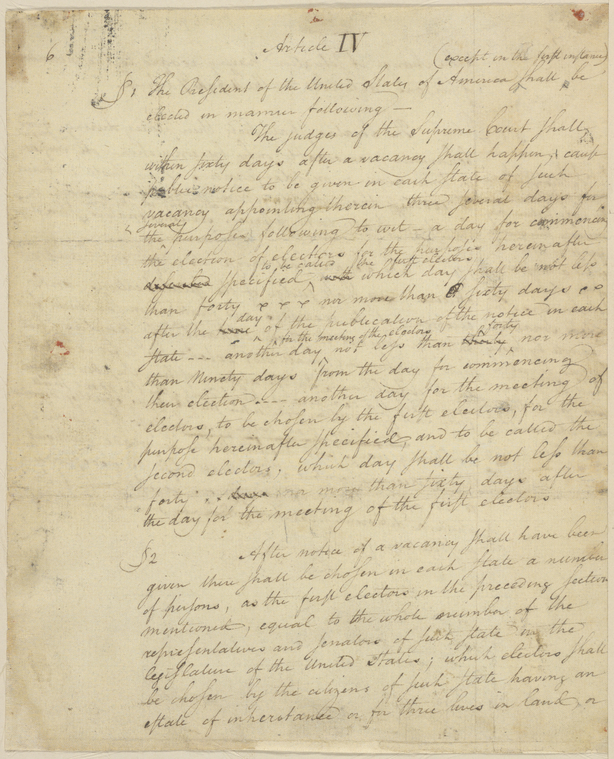 6
Article IV
(except in the first instance)
§ 1 The President of the United States of America shall, be
elected in manner following —
The judges of the Supreme Court shall,
within sixty days after a vacancy shall happen, cause
public notice to be given in each State of such
vacancy appointing therein three several days for
several
the purposes following to wit — a day for commencing
the election of electors for the purposes hereinafter
to be called the first electors
specified, which day shall be not less
than forty nor more than sixty days
day
after the of the publication of the notice in each
for the meeting of the electors forty
State --- another day not less than nor more
than Ninety days from the day for commencing
their election --- another day for the meeting of
electors, to be chosen by the first electors, for the
purpose hereinafter specified, and to be called the
second electors, which day shall be not less than
forty nor more than sixty days after
the day for the meeting of the first electors
§ 2 After notice of a vacancy shall have been
given there shall be chosen in each State a number
of persons, as the first electors in the preceding section
mentioned, equal to the whole number of the
representatives and senators of such state in the
legislature of the United States; which electors shall
be chosen by the citizens of such state having an
estate of inheritance or for three lives in land, or